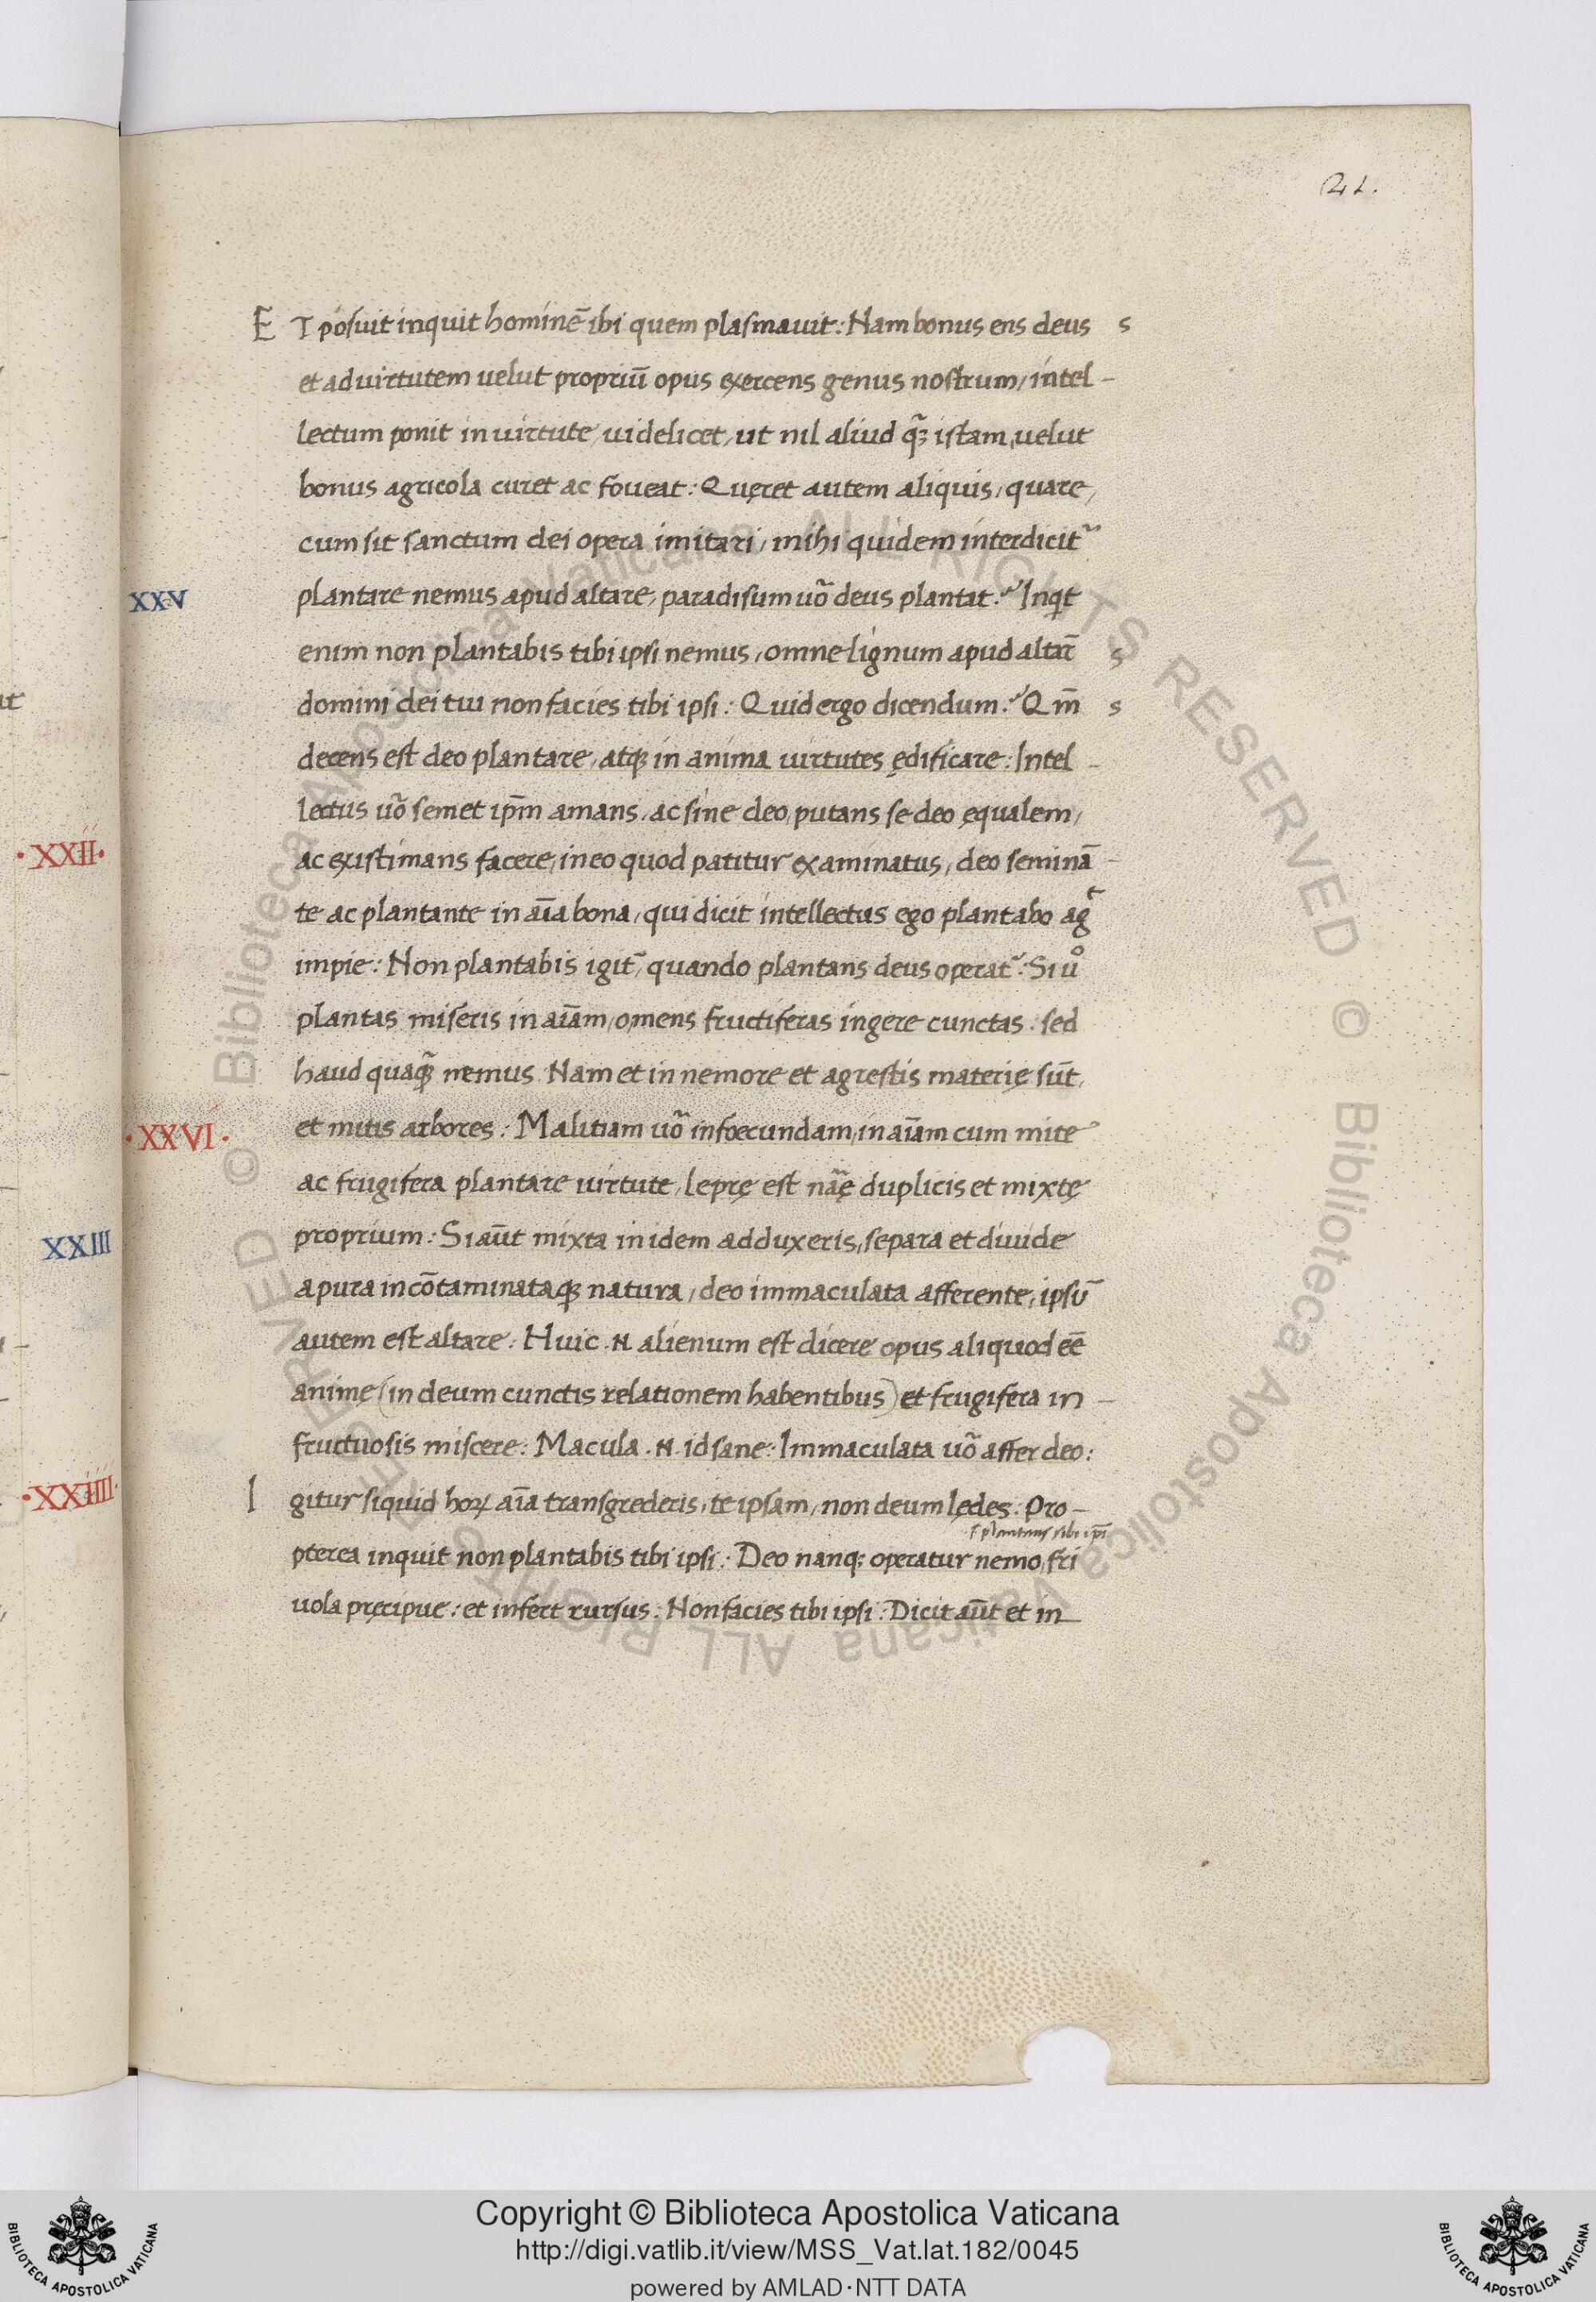 21.
ET posuit inquit hominē ibi quem plasmauit: Nam bonus ens deus s
et ad uirtutem uelut propriū opus exercens genus nostrum, intel-
lectum ponit in uirtute, uidelicet, ut nil aliud q̃ꝫ istam, uelut
bonus agricola curet ac foueat: Quęret autem aliquis, quare,
cum sit sanctum dei opera imitari, mihi quidem interdicit᷑
XXV plantare nemus apud altare, paradisum uõ deus plantat? Inqt
enim non plantabis tibi ipsi nemus, omne lignum apud altar̃ s
domini dei tui non facies tibi ipsi: Quid ergo dicendum? Qm̃ s
decens est deo plantare, atqꝫ in anima uirtutes ędificare: Intel-
lectus uõ semet ip̃m amans, ac sine deo, putans se deo ęqualem,
·XXII· ac existimans facere, in eo quod patitur examinatus, deo seminã-
te ac plantante in aĩa bona, qui dicit intellectus ego plantabo ag̃
impie: Non plantabis igit᷑, quando plantans deus operat᷑: Si uº
plantas miseris in aĩam, o, mens fructiferas ingere cunctas: sed
haud quaq̃ꝫ nemus. Nam et in nemore et agrestis materię sũt,
·XXVI· et mitis arbores: Malitiam uõ infoecundam, in aĩam cum mite
ac frugifera plantare uirtute, leprę est nãę duplicis et mixtę
XXIII proprium: Si aũt mixta in idem adduxeris, separa et diuide
a pura incõtaminataqꝫ natura, deo immaculata afferente, ipsũ
autem est altare: Huic .N. alienum est dicere opus aliquod eẽ
animę (in deum cunctis relationem habentibus) et frugifera in-
fructuosis miscere: Macula .N. id sane: Immaculata uõ affer deo:
·XXIIII· Igitur siquid hoꝝ aĩa transgrederis, te ipsam, non deum lędes: Pro-
plantans sibi ip̃i
pterea inquit non plantabis tibi ipsi: Deo nanqꝫ operatur nemo, fri
uola pręcipue: et infert rursus: Non facies tibi ipsi: Dicit aũt et in
© Biblioteca Apostolica Vaticana ALL RIGHTS RESERVED © Biblioteca Apostolica Vaticana ALL RIGHTS RESERVED
Copyright © Biblioteca Apostolica Vaticana
http://digi.vatlib.it/view/MSS_Vat.lat.182/0045
powered by AMLAD·NTT DATA
BIBLIOTECA APOSTOLICA VATICANA
BIBLIOTECA APOSTOLICA VATICANA